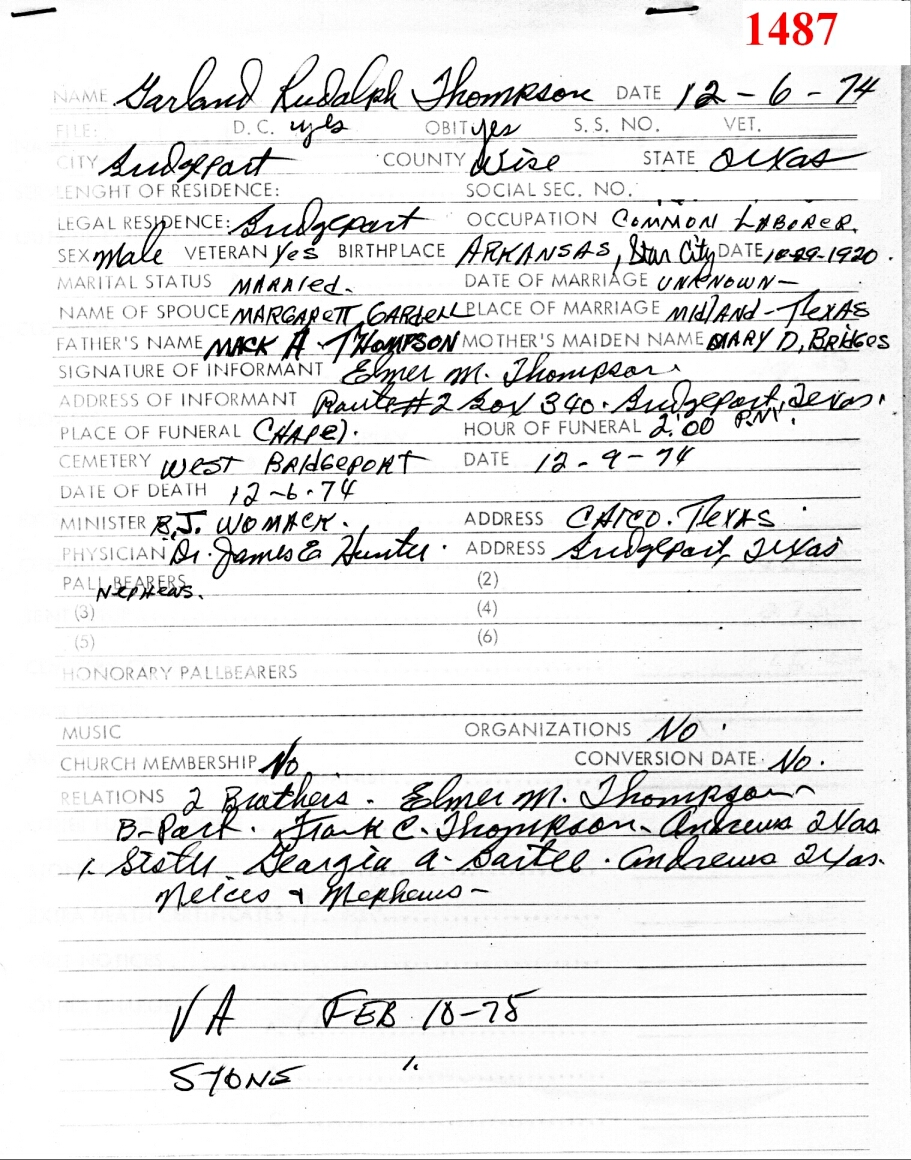 1487
NAME Garland Rudalph Thompson DATE 12-6-74
FILE: D.C. yes OBIT yes S.S. NO. VET.
CITY Bridgeport COUNTY Wise STATE Texas
LENGHT OF RESIDENCE: SOCIAL SEC. NO.
LEGAL RESIDENCE: Bridgeport OCCUPATION COMMON LABORER.
SEX Male VETERAN Yes BIRTHPLACE ARKANSAS, Star City DATE 10-29-1920.
MARITAL STATUS MARRIED. DATE OF MARRIAGE UNKNOWN-
NAME OF SPOUCE MARGARETT GARDEN PLACE OF MARRIAGE MIDLAND-TEXAS
FATHER'S NAME MACK A. THOMPSON MOTHER'S MAIDEN NAME MARY D, BRIDGES
SIGNATURE OF INFORMANT Elmer M. Thompson.
ADDRESS OF INFORMANT Route #2 Box 340. Bridgeport, Texas.
PLACE OF FUNERAL CHAPEL. HOUR OF FUNERAL 2:00 P.M.
CEMETERY WEST BRIDGEPORT DATE 12-9-74
DATE OF DEATH 12-6-74
MINISTER B.J. WOMACK. ADDRESS TEXAS
PHYSICIAN Dr. James E. Hunter. ADDRESS Bridgeport, Texas
PALL BEARERS (2)
NEPHEWS.
(3) (4)
(5) (6)
HONORARY PALLBEARERS
MUSIC ORGANIZATIONS No.
CHURCH MEMBERSHIP No CONVERSION DATE No.
RELATIONS 2 Brothers. Elmer M. Thompson-
B-Port. Frank C. Thompson- Andrews Texas
1. Sister Georgia A. Andrews Texas.
Neices & Nephews-
VA FEB 10-75
STONE "